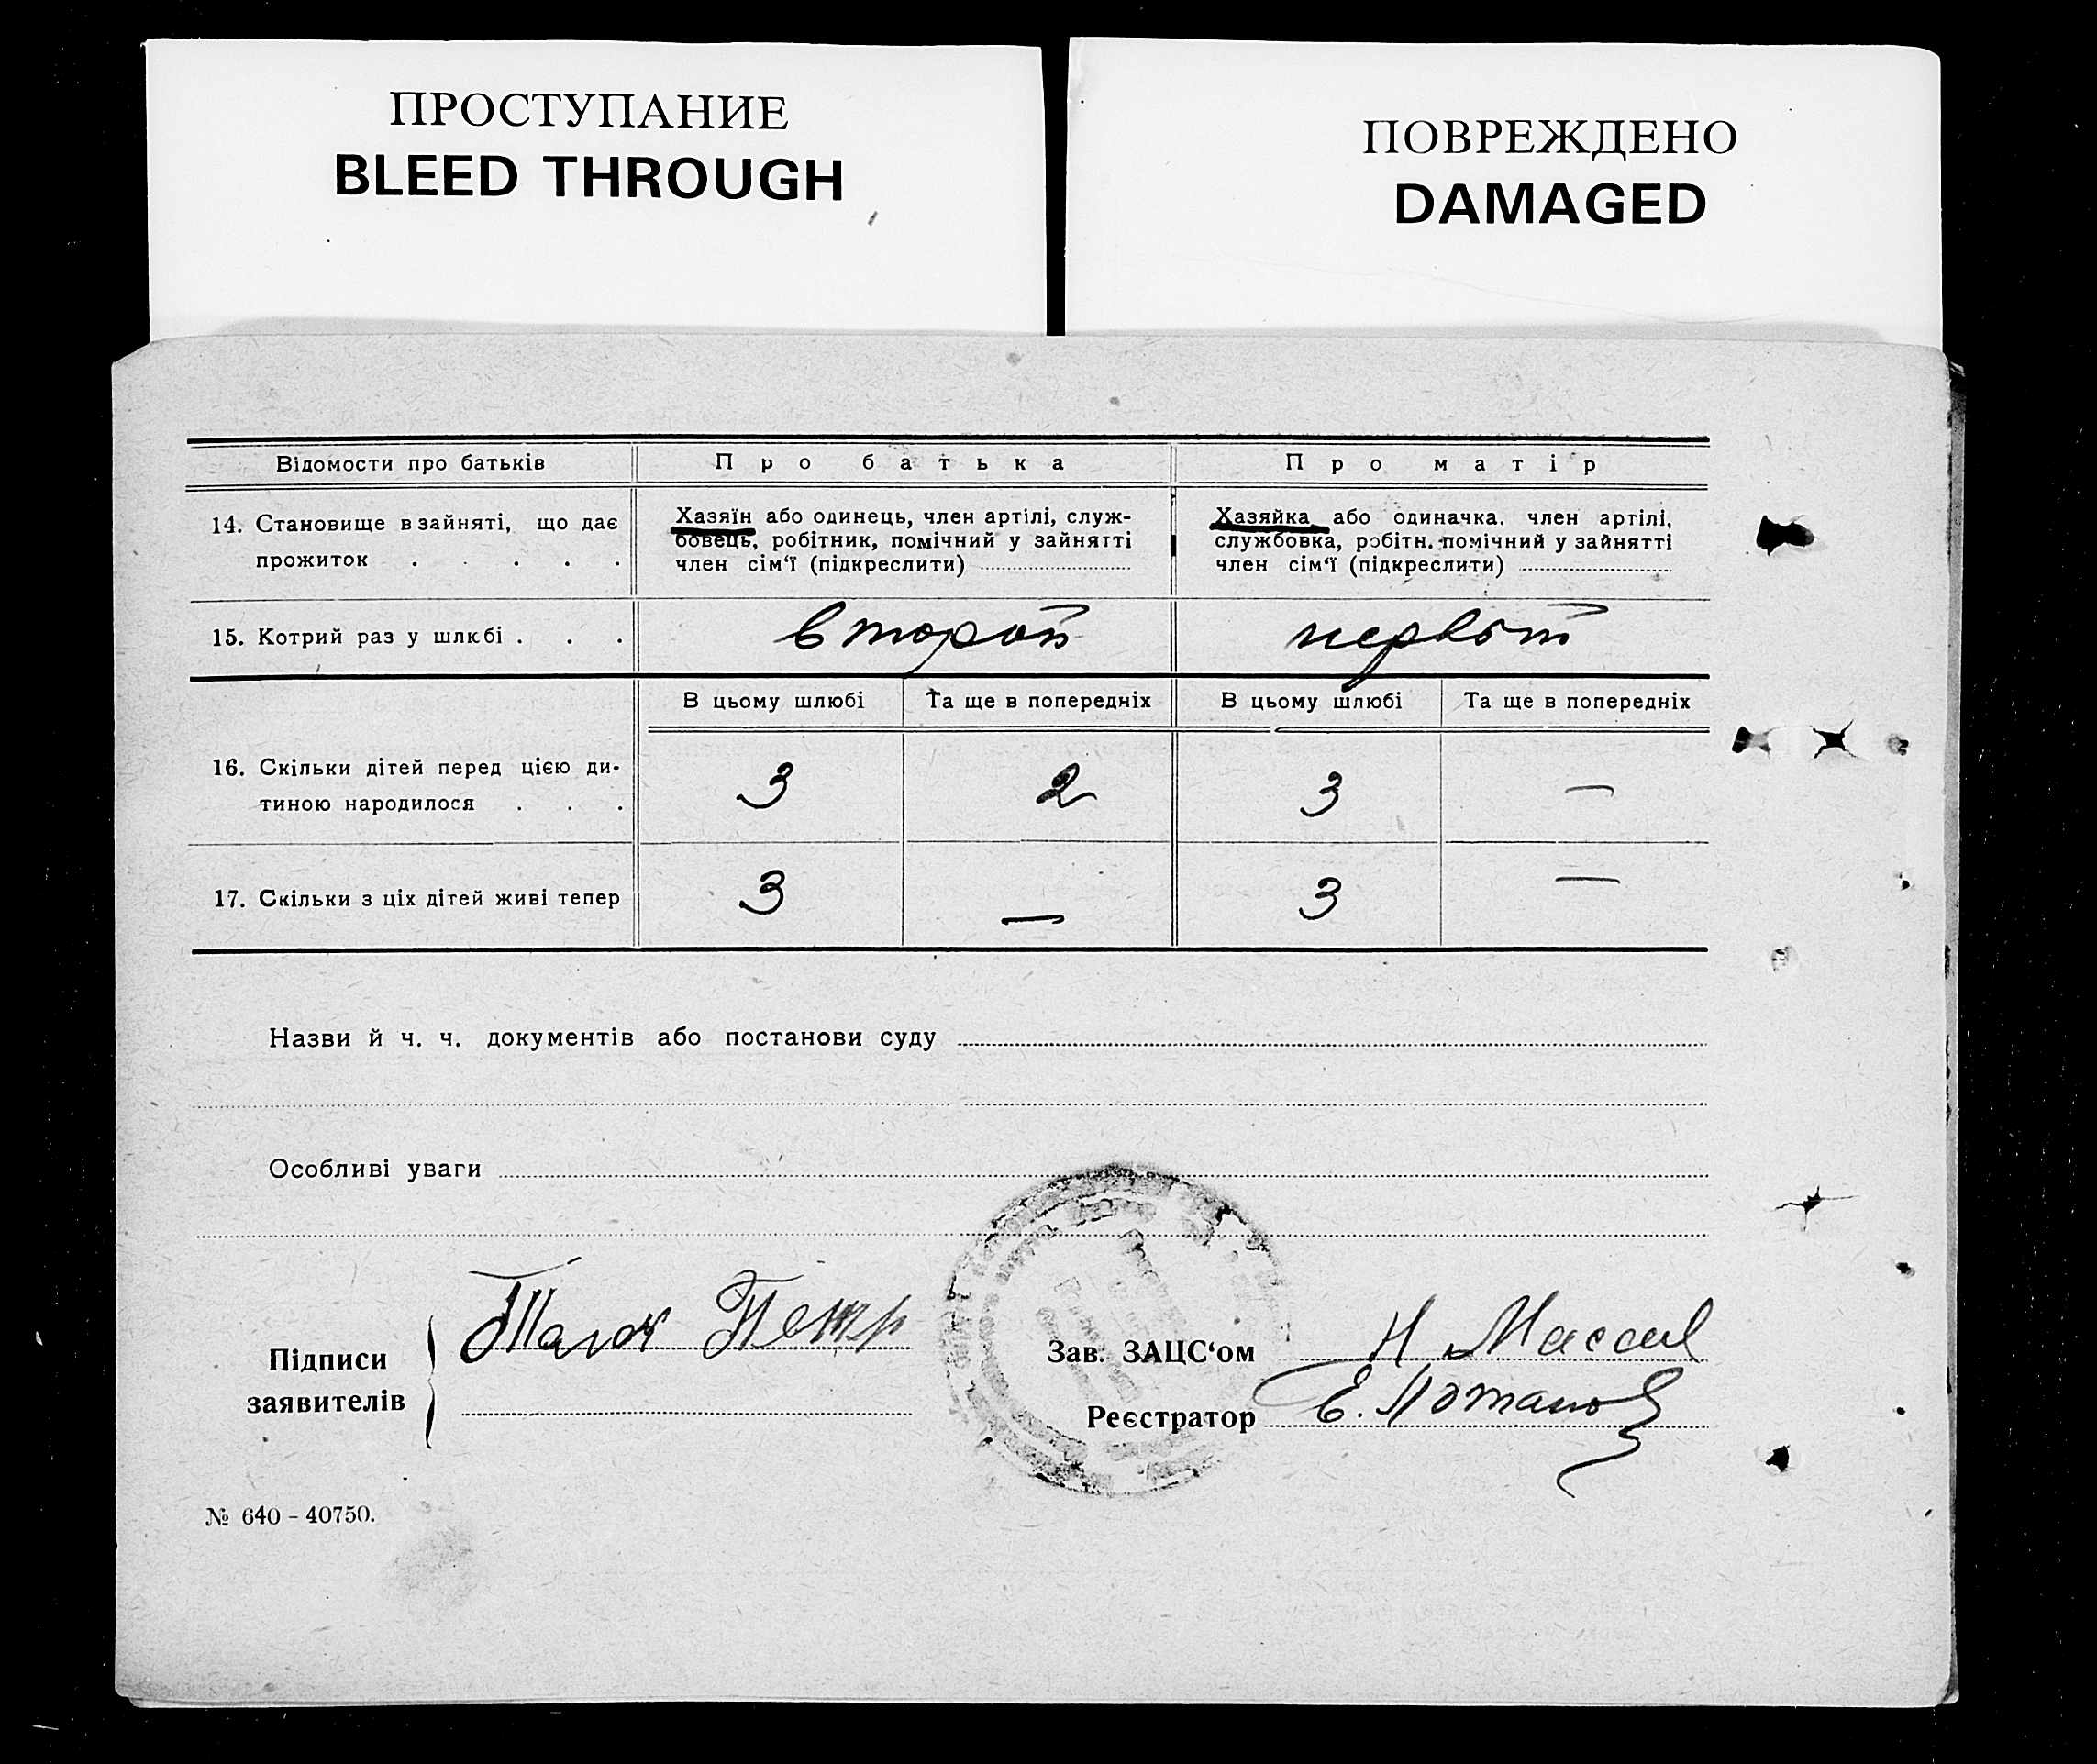 ПРОСТУПАНИЕ
BLEED THROUGH
ПОВРЕЖДЕНО
DAMAGED
Відомости про батьків
Про батька
Про матір
14. Становище в зайняті, що дає
прожиток . . . . .
Хазяїн або одинець, член артілі, служ-
бовець, робітник, помічний у зайнятті
член сім‘ї (підкреслити)
Хазяйка або одиначка. член артілі,
службовка, робітн. помічний у зайнятті
член сім‘ї (підкреслити)
15. Котрий раз у шлюбі . . .
второй
первый
В цьому шлюбі
Та ще в попередніх
В цьому шлюбі
Та ще в попередніх
16. Скільки дітей перед цією ди-
тиною народилося . . .
3
2
3
—
17. Скільки з ціх дітей живі тепер
3
—
3
—
Назви й ч. ч. документів або постанови суду
Особливі уваги
Підписи
заявителів
Петр
Зав. ЗАЦС‘ом
Н
Реєстратор
Е. Потапов
№ 640 - 40750.